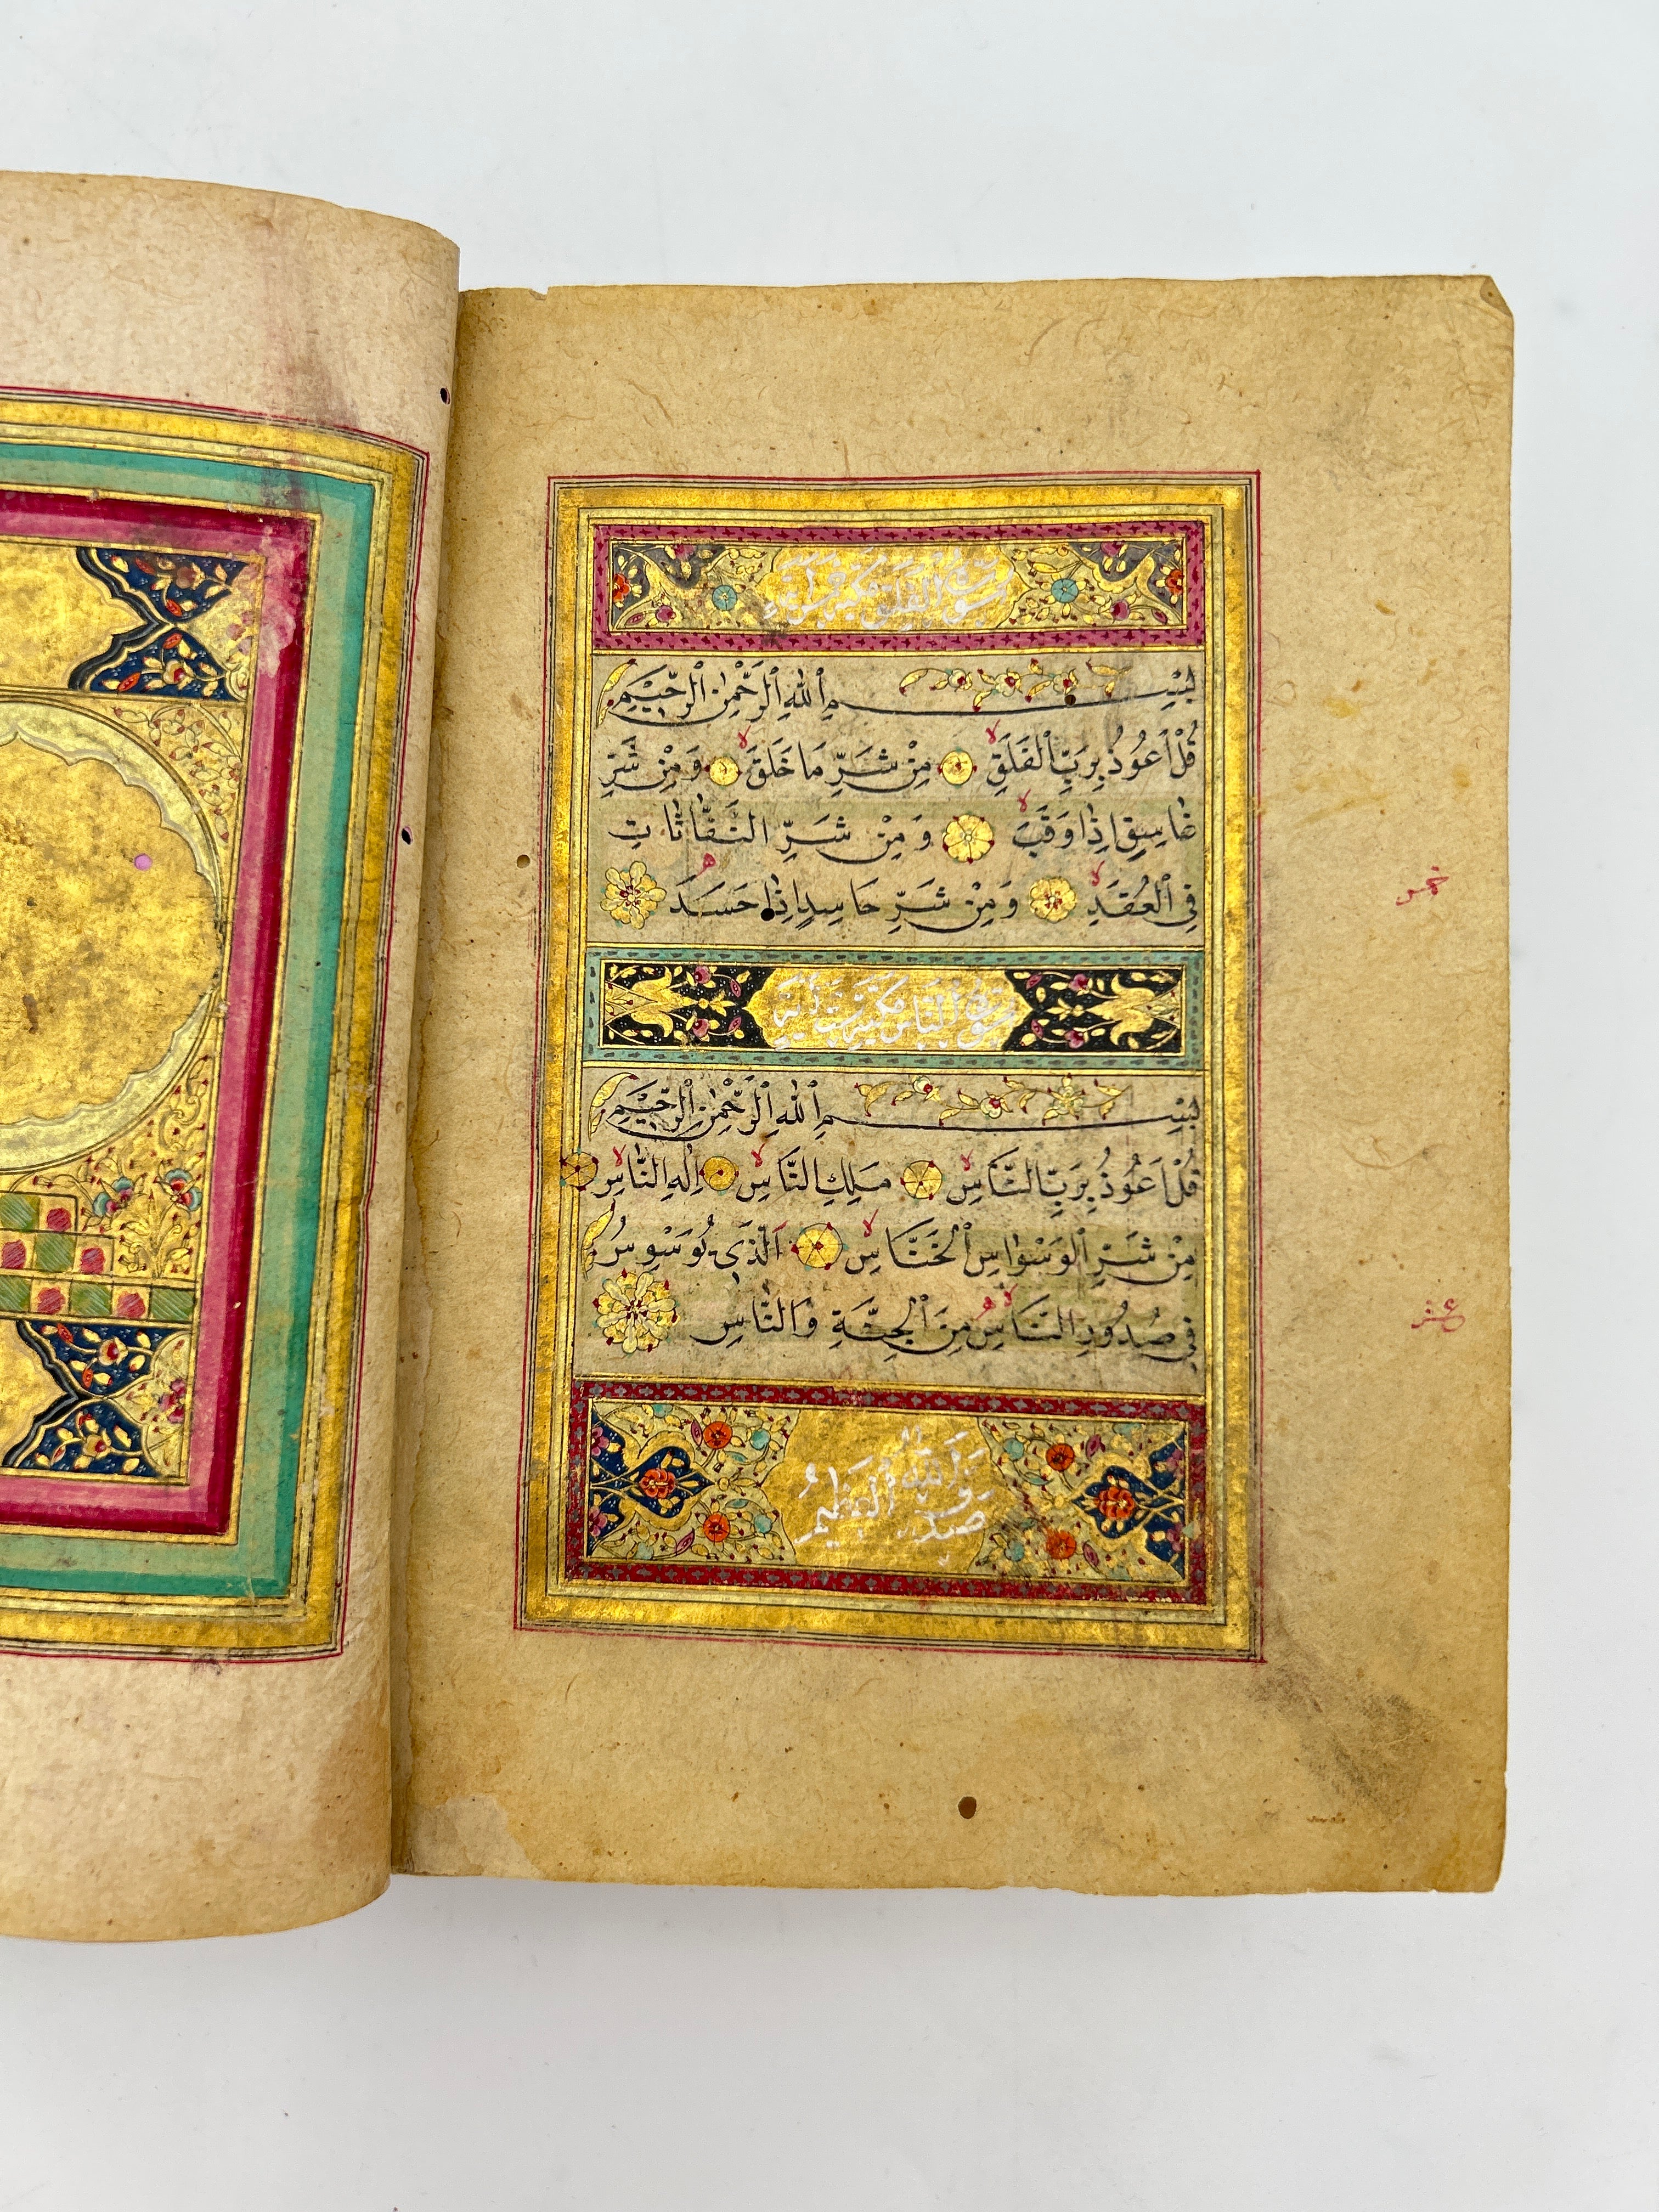 سورة الفلق مكية خمس آية
بِسْمِ اللهِ الرَّحْمٰنِ الرَّحِيْمِ
قُلْ اَعُوْذُ بِرَبِّ الْفَلَقِ لا مِنْ شَرِّ مَا خَلَقَ لا وَمِنْ شَرِّ
غَاسِقٍ اِذَا وَقَبَ لا وَمِنْ شَرِّ النَّفَّاثَاتِ
فِي الْعُقَدِ لا وَمِنْ شَرِّ حَاسِدٍ اِذَا حَسَدَ ه
خمس
سورة الناس مكية ست آية
بِسْمِ اللهِ الرَّحْمٰنِ الرَّحِيْمِ
قُلْ اَعُوْذُ بِرَبِّ النَّاسِ لا مَلِكِ النَّاسِ لا اِلٰهِ النَّاسِ لا
مِنْ شَرِّ الْوَسْوَاسِ الْخَنَّاسِ لا اَلَّذِي يُوَسْوِسُ
فِي صُدُورِ النَّاسِ لا مِنَ الْجِنَّةِ وَالنَّاسِ ه
عشر
صَدَقَ اللهُ الْعَظِيمُ